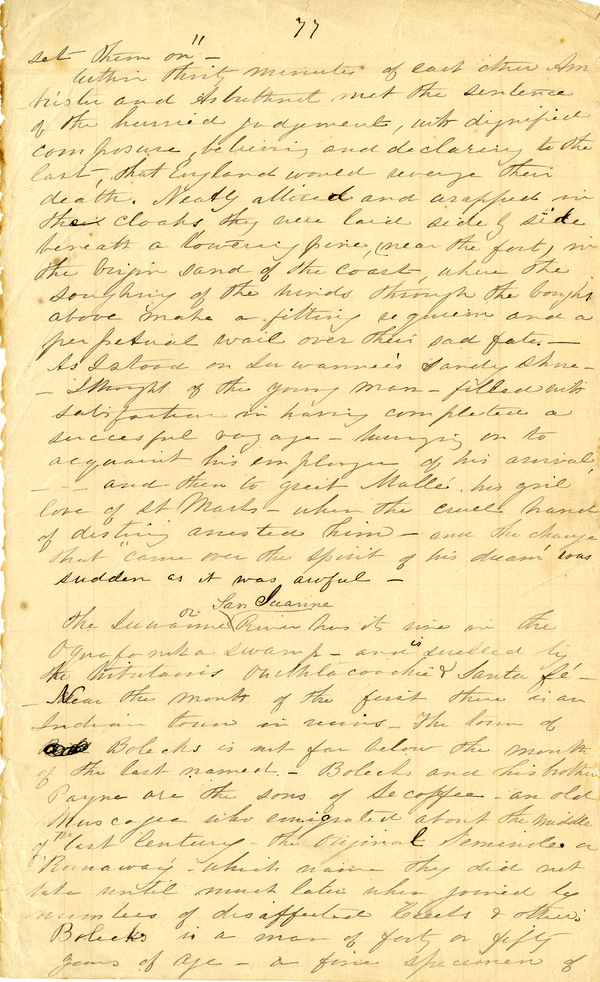 77
set them on" —
Within thirt minutes of each other Am
brister and Arbuthnot met the sentence
of the hurried judgement, with dignified
composure, believing and declaring to the
last, that England would revenge their
death. Neatly attired and wrapped in
their cloaks they were laid side by side
beneath a towering pine, (near the fort) in
the virgin sand of the coast, where the
soughing of the winds through the boughs
above make a fitting requiem and a
perpetual wail over their sad fate. —
As I stood on Suwannee's sandy shore —
— I thought of the young man — filled with
satisfaction in having completed a
succesful voyage — hurrying on to
acquaint his employer of his arrival
— — and then to greet Mallé, his girl
love of St Marks — when the cruel hand
of destiny arrested him — and the change
that "came over the spirit of his dream" was
sudden as it was awful —
or San Juanne
The Suwannee River has its rise in the
Oquafonoka swamp — and is swelled by
the tributaries Outhlacoochie & Santa fé —
— Near the mouth of the first there is an
Indian town in ruins — The town of
Bolecks is not far below the mouth
of the last named — Bolecks and his brother
Payne are the sons of Secoffee — an old
Muscogee who emigrated about the middle
of the last Century — the original Seminole or
'Runaway' — which name they did not
take until much later when joined by
numbers of disaffected Creeks & others
Bolecks is a man of forty or fifty
years of age — a fine specimen of